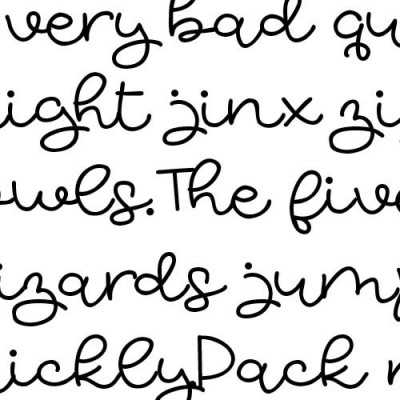 very bad qu
ight jinx zi
owls.The five
izards jump
icklyPack